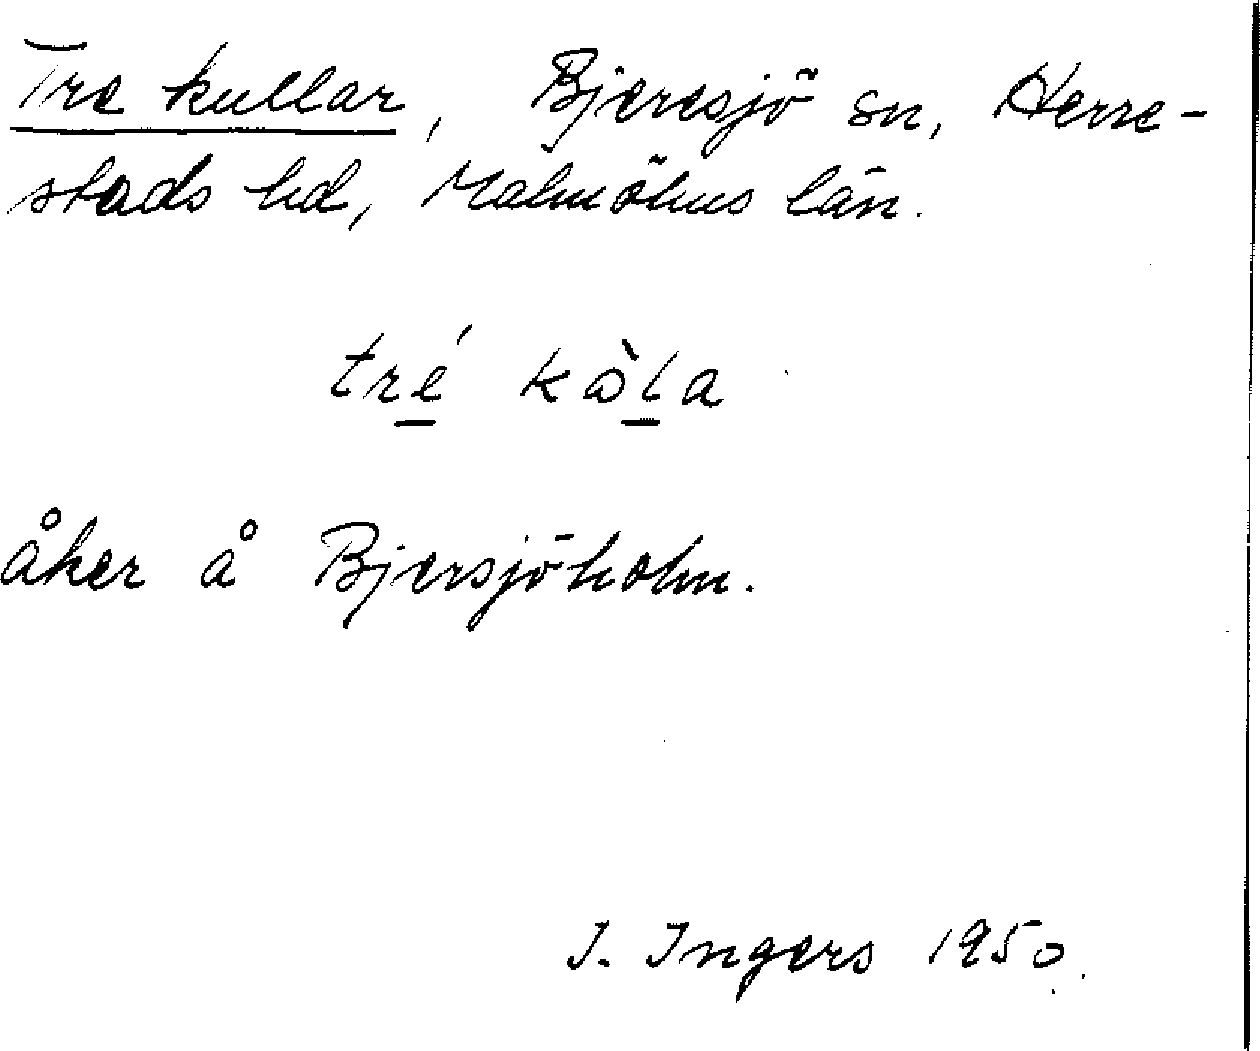 Tre kullar, Bjeresjö sn, Herre-
stads hd, Malmöhus län.
tré kòla
åker å Bjersjöholm.
I. Ingers 1950.